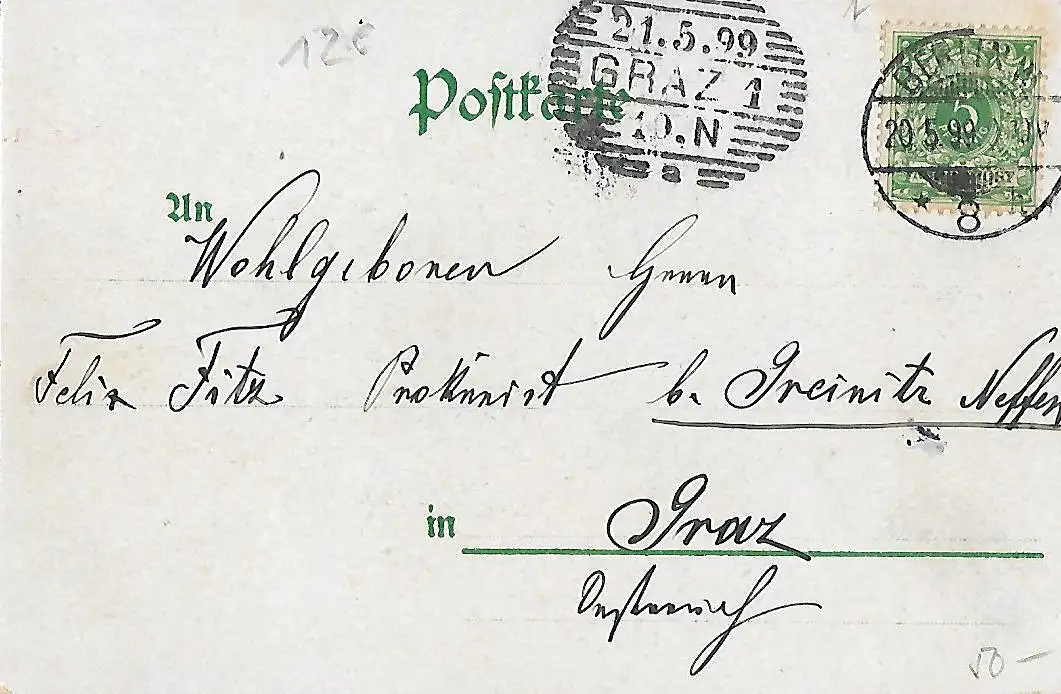 12€
Postkarte
21.5.99
GRAZ 1
10.N
BERLIN
20.5.99
5
8
An
Wohlgeboren Herrn
Felix Fitz Prokurist b. Greinitz Neffen
in Graz
Oesterreich
50–